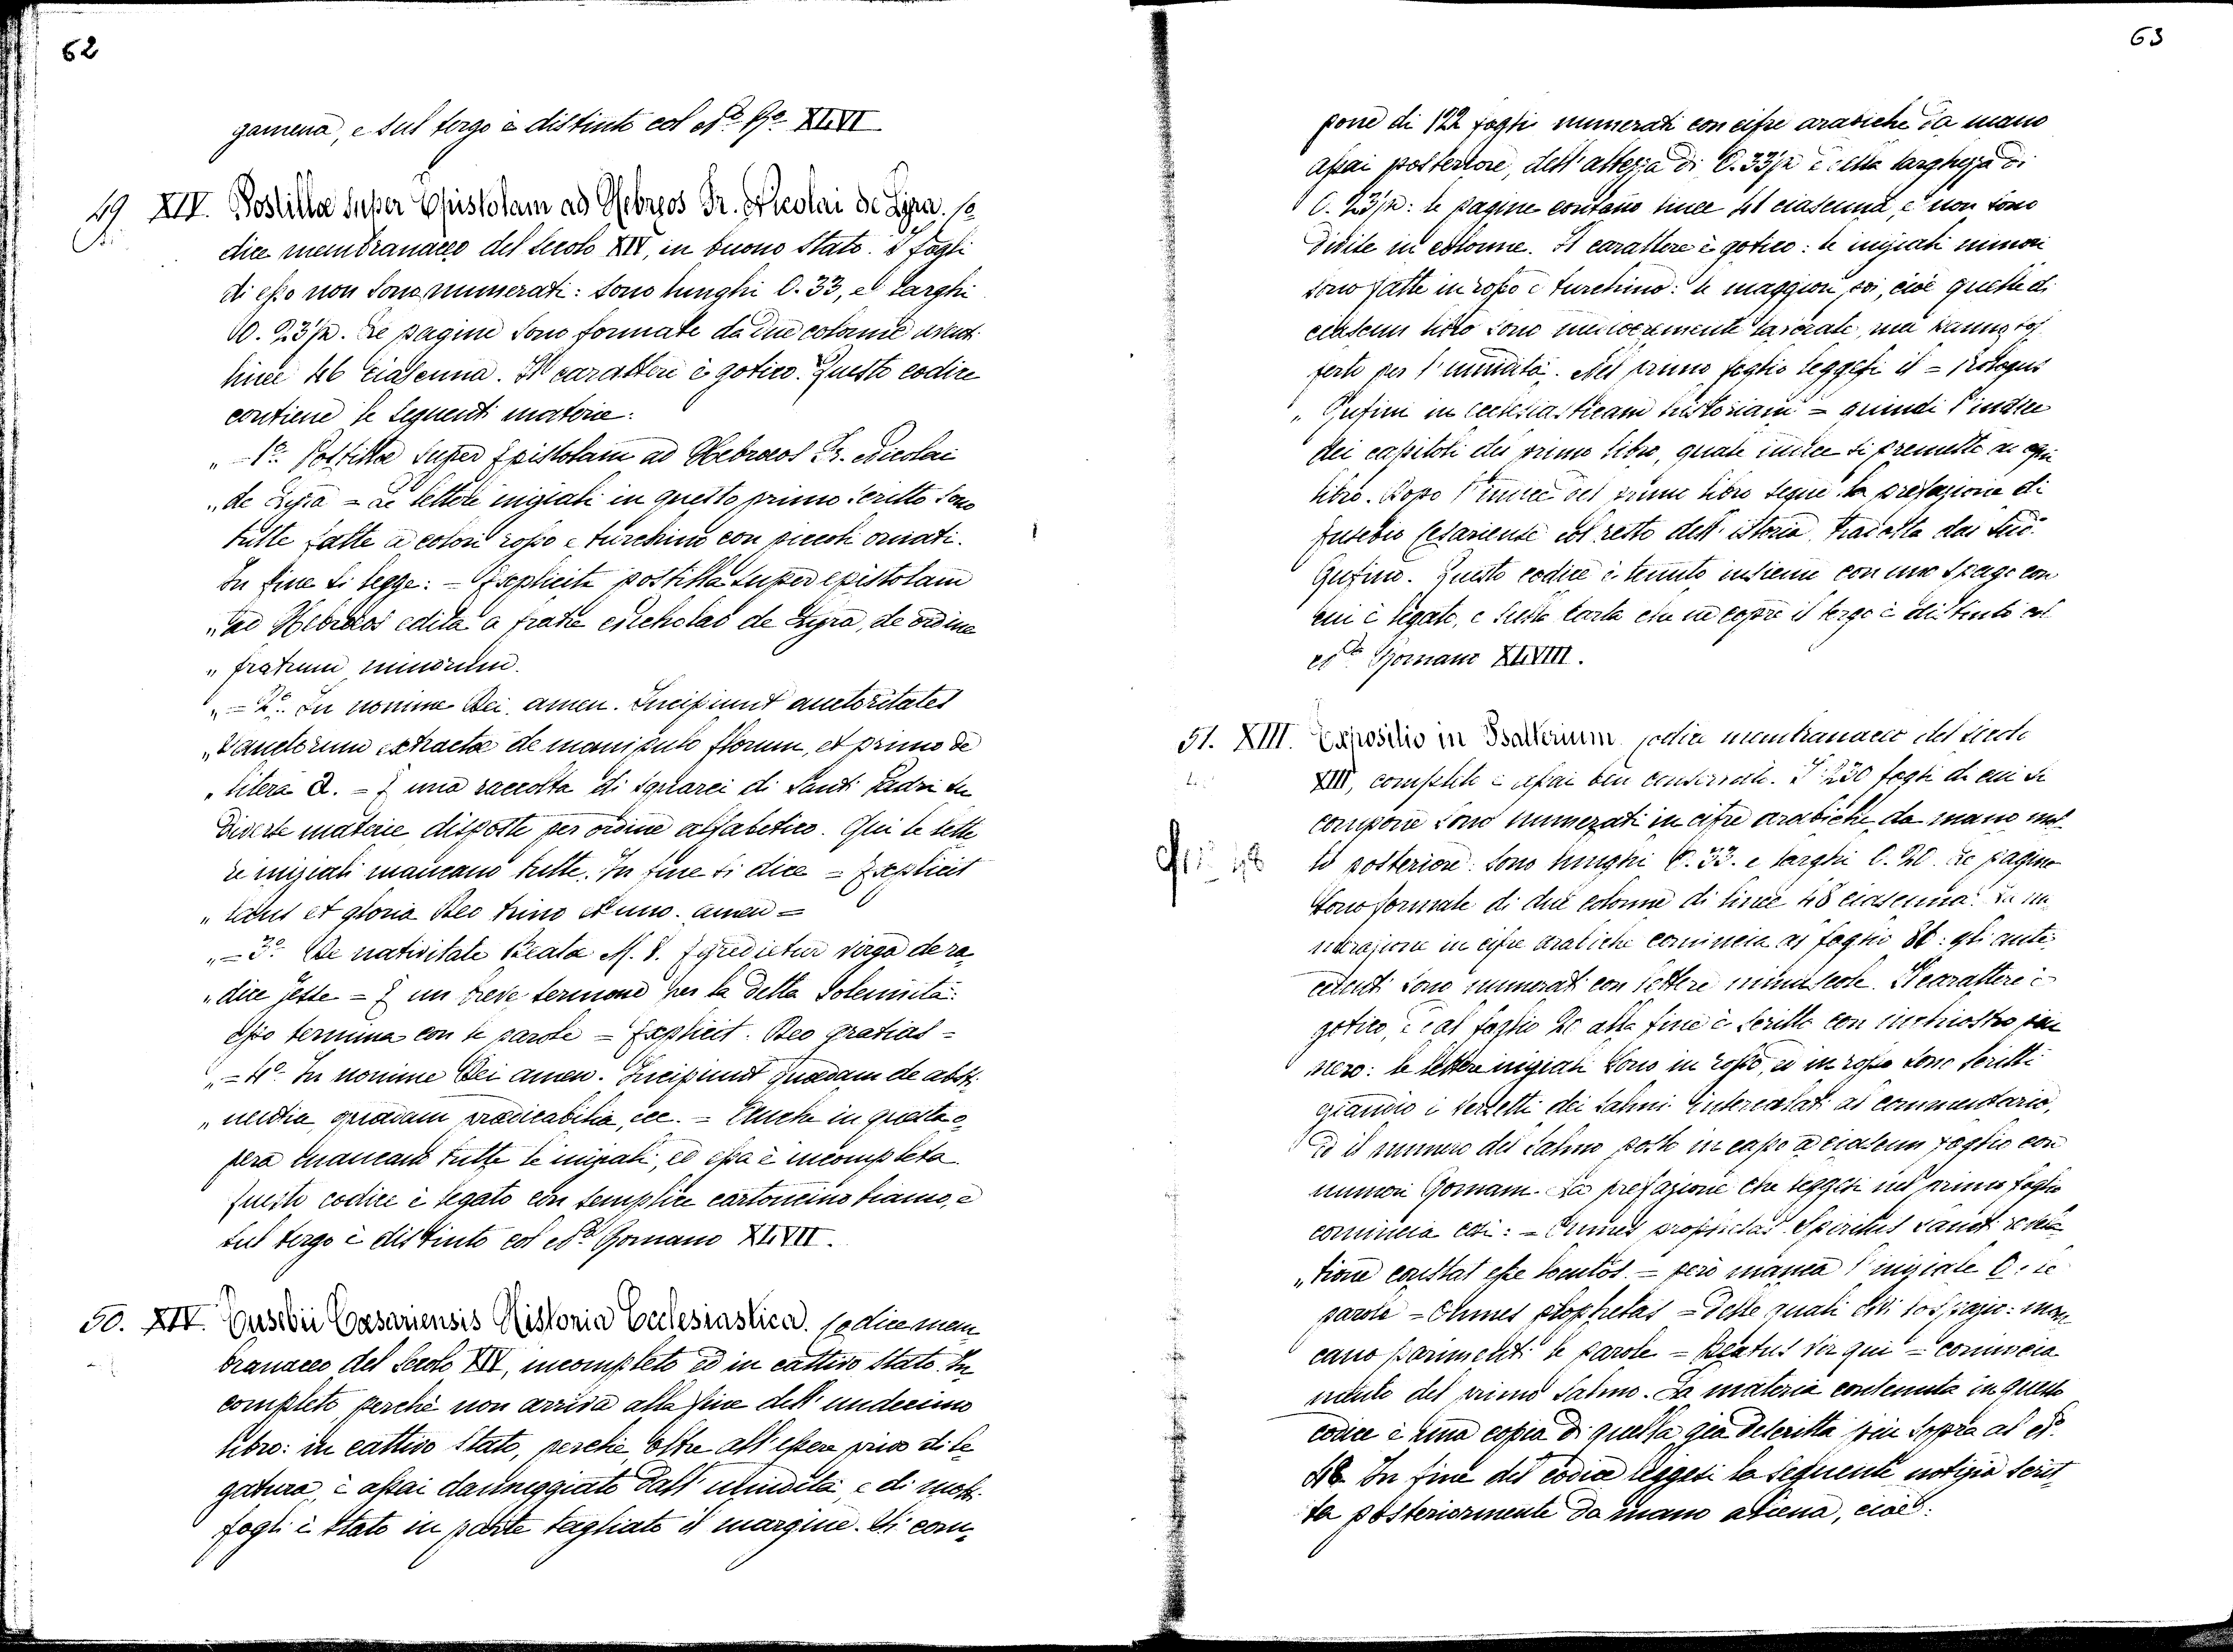 62
gamena, e sul tergo è distinto col No Ro XLVI
49 XIV. Postillæ super Epistolam ad Hebreos Fr. Nicolai de Lyra. Co„
dice membranaceo del secolo XIV, in buono stato. I fogli
di esso non sono numerati: sono lunghi C. 33, e larghi
C. 23½. Le pagine sono formate da due colonne aventi
linee 46 ciascuna. Il carattere è gotico. Questo codice
contiene le seguenti materie:
„ = 1o. Postillæ super Epistolam ad Hebræos Fr. Nicolai
„ de Lyra = Le lettere iniziali in questo primo scritto sono
tutte fatte a colori rosso e turchino con piccoli ornati.
In fine si legge: = Explicita postilla super epistolam
„ ad Hebræos edita a fratre Nicholao de Lyra, de ordine
„ fratrum minorum.
„ = 2o. In nomine Dei amen. Incipiunt auctoritates
„ Sanctorum extractæ de manipulo florum, et primo de
„ litera A. = È una raccolta di squarci di Santi Padri su
diverse materie disposte per ordine alfabetico. Qui le lette„
re iniziali mancano tutte. In fine si dice = Explicit
„ laus et gloria Deo trino et uno. amen =
„ = 3o. De nativitate Beatæ M. V. Egredietur virga de ra„
„ dice Jesse = È un breve sermone per la detta solennità:
esso termina con le parole = Explicit. Deo gratias =
„ = 4o. In nomine Dei amen. Incipiunt quædam de absti„
„ nentia, quædam prædicabilia, ec. = Anche in questa o„
pera mancano tutte le iniziali, ed essa è incompleta.
Questo codice è legato con semplice cartoncino bianco, e
sul tergo è distinto col No Romano XLVII.
50. XIV. Eusebii Cæsariensis Historia Ecclesiastica. Codice mem„
branaceo del Secolo XIV, incompleto ed in cattivo stato. In„
completo, perchè non arriva alla fine dell'undecimo
libro: in cattivo stato, perchè, oltre all'essere privo di le„
gatura, è assai danneggiato dall'umidità, e di molti
fogli è stato in parte tagliato il margine. Si com„
63
pone di 122 fogli numerati con cifre arabiche da mano
assai posteriore, dell'altezza di C. 33½ e della larghezza di
C. 23½: le pagine contano linee 41 ciascuna, e non sono
divise in colonne. Il carattere è gotico: le iniziali minori
sono fatte in rosso e turchino: le maggiori poi, cioè quelle di
ciascun libro sono mediocremente lavorate, ma hanno sof„
ferto per l'umidità. Nel primo foglio leggesi il = Prologus
„ Rufini in ecclesiasticam historiam = quindi l'indice
dei capitoli del primo libro, quale indice si premette ad ogni
libro. Dopo l'indice del primo libro segue la prefazione di
Eusebio Cesariense col resto dell'istoria tradotta dal sud.o
Rufino. Questo codice è tenuto insieme con uno spago con
cui è legato, e sulla carta che ne copre il tergo è distinto col
No Romano XLVIII.
51. XIII. Expositio in Psalterium. Codice membranaceo del secolo
XIII, completo e assai ben conservato. I 230 fogli di cui si
compone sono numerati in cifre arabiche da mano mol„
to posteriore: sono lunghi C. 33. e larghi C. 20. Le pagine
sono formate di due colonne di linee 48 ciascuna. La nu„
merazione in cifre arabiche comincia al foglio 26: gli ante„
cedenti sono numerati con lettere minuscole. Il carattere è
gotico, e dal foglio 20 alla fine è scritto con inchiostro più
nero: le lettere iniziali sono in rosso, ed in rosso sono scritti
eziandio i versetti dei salmi intercalati al commentario,
ed il numero del salmo posto in capo a ciascun foglio con
numeri Romani. La prefazione che leggesi nel primo foglio
comincia così: = Omnes prophetas Spiritus Sancti revela„
„ tione constat esse locutos. = però manca l'iniziale O. le
parole = Omnes prophetas = delle quali evvi lo spazio: man„
cano parimenti le parole = Beatus vir qui = comincia„
mento del primo Salmo. La materia contenuta in questo
codice è una copia di quella già descritta più sopra al No
48. In fine del codice leggesi la seguente notizia scrit„
ta posteriormente da mano aliena, cioè: